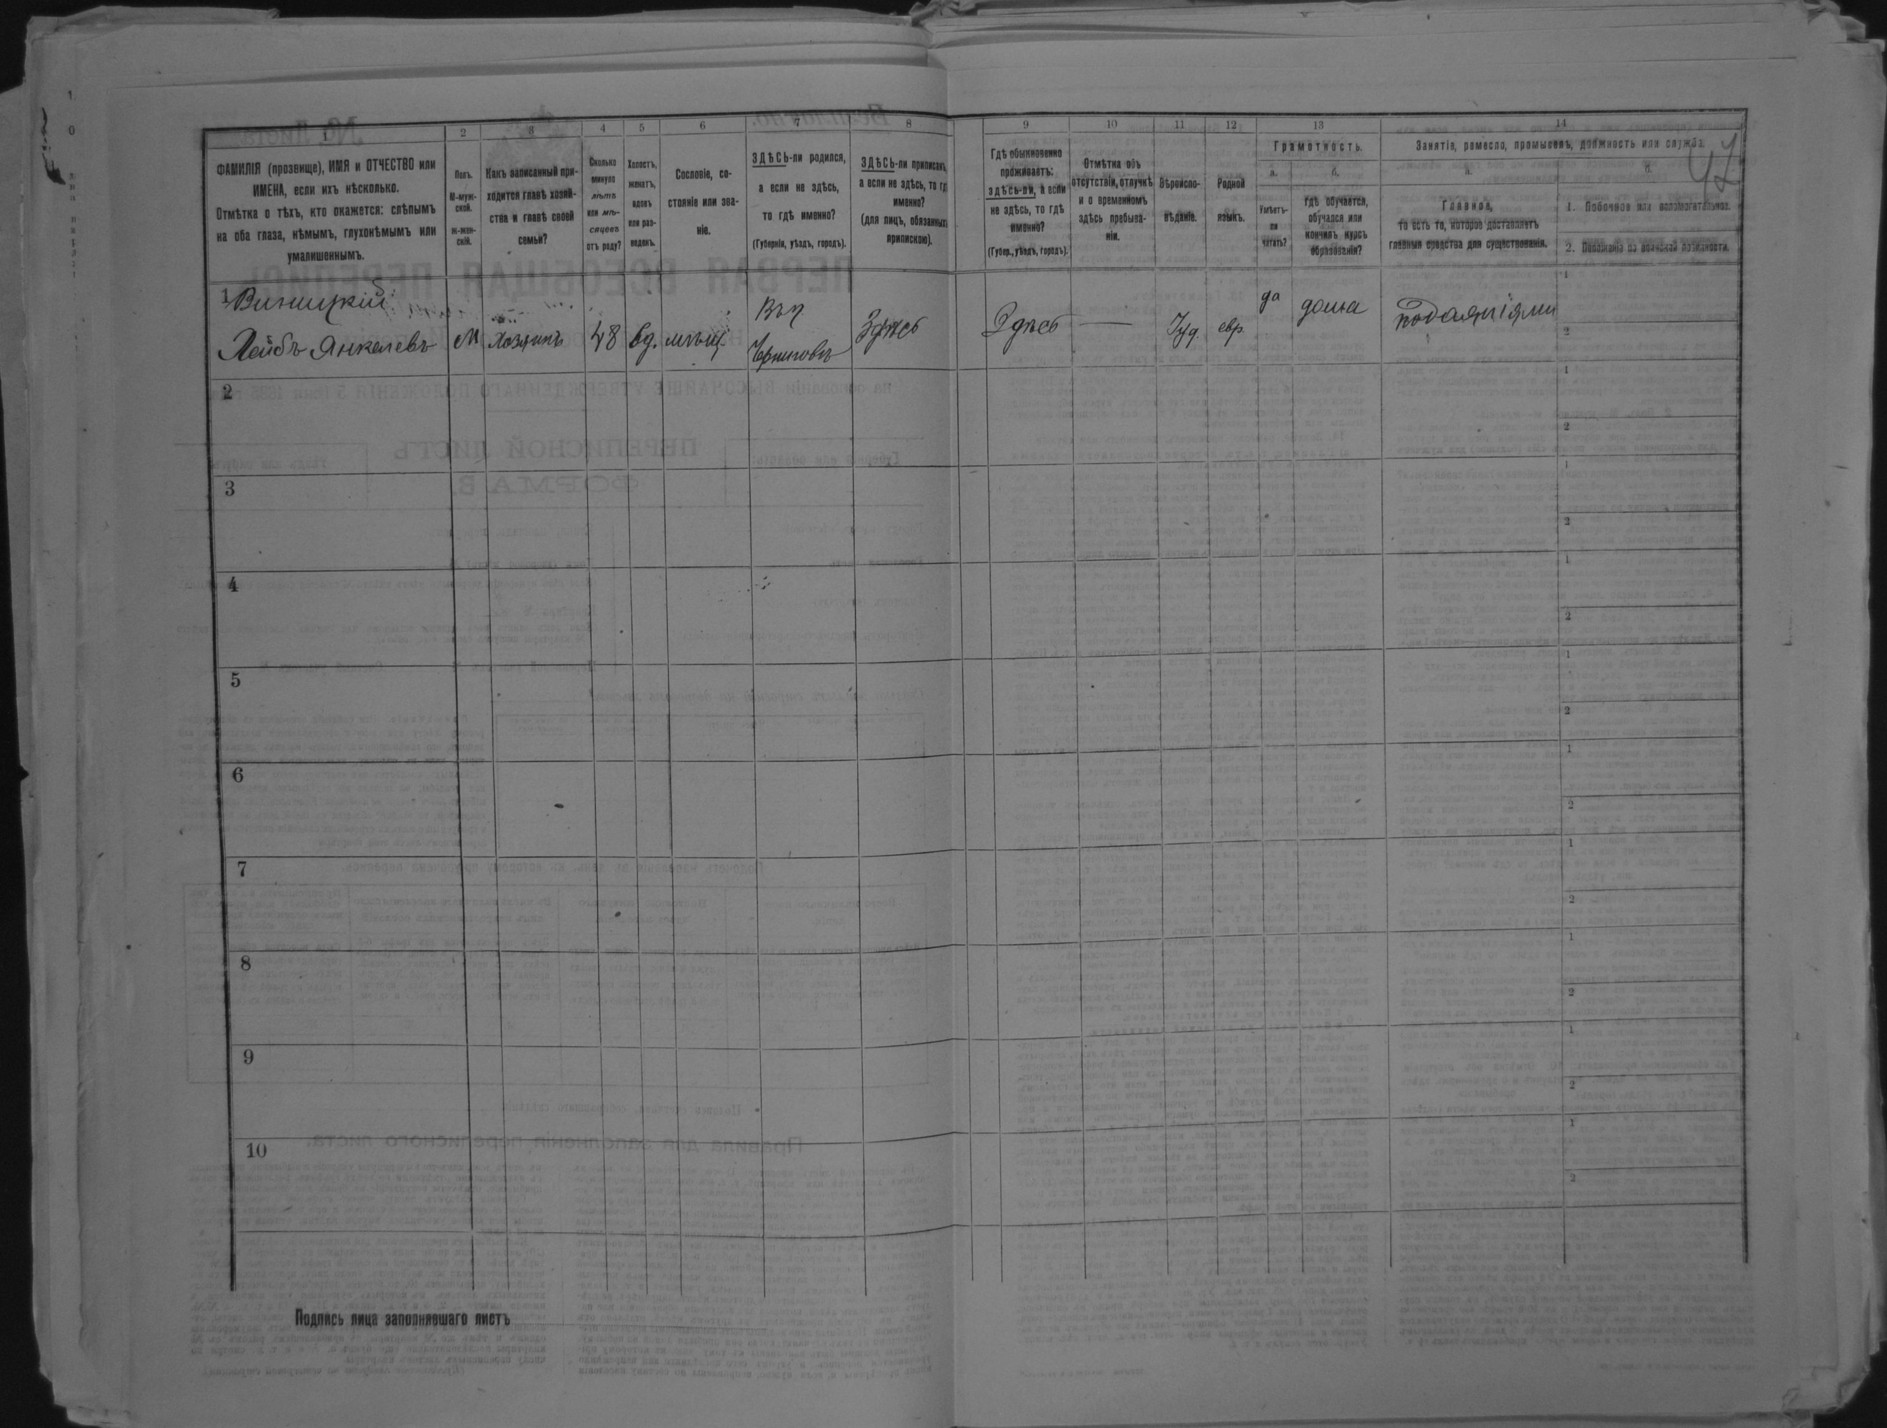 1 2 3 4 5 6 7 8 9 10 11 12 13 14
ФАМИЛІЯ (прозвище), ИМЯ и ОТЧЕСТВО или
ИМЕНА, если ихъ нѣсколько.
Отмѣтка о тѣхъ, кто окажется: слѣпымъ
на оба глаза, нѣмымъ, глухонѣмымъ или
умалишеннымъ.
Полъ.
М-муж-
ской.
ж-жен-
скій.
Какъ записанный при-
ходится главѣ хозяй-
ства и главѣ своей
семьи?
Сколько
минуло
лѣтъ
или мѣ-
сяцевъ
отъ роду?
Холостъ,
женатъ,
вдовъ
или раз-
веденъ.
Сословіе, со-
стояніе или зва-
ніе.
ЗДѢСЬ-ли родился,
а если не здѣсь,
то гдѣ именно?
(Губернія, уѣздъ, городъ).
ЗДѢСЬ-ли приписанъ,
а если не здѣсь, то гдѣ
именно?
(для лицъ, обязанныхъ
припискою).
Гдѣ обыкновенно
проживаетъ:
здѣсь-ли, а если
не здѣсь, то гдѣ
именно?
(Губер., уѣздъ, городъ).
Отмѣтка объ
отсутствіи, отлучкѣ
и о временномъ
здѣсь пребыва-
ніи.
Вѣроиспо-
вѣданіе.
Родной
языкъ.
Грамотность.
а.
Умѣетъ-
ли
читать?
б.
гдѣ обучается,
обучался или
кончилъ курсъ
образованія?
Занятіе, ремесло, промыселъ, должность или служба.
а.
Главное,
то есть то, которое доставляетъ
главныя средства для существованія.
б.
1. Побочное или вспомогательное.
2. Положеніе по воинской повинности.
42
1 Виницкій
Лейбъ Янкелевъ
М
хозяинъ
48
вд.
мѣщ.
Черниговъ
Здѣсь
Здѣсь
—
Іуд.
евр.
да
дома
подаяніями
1
2
2
1
2
3
1
2
4
1
2
5
1
2
6
1
2
7
1
2
8
1
2
9
1
2
10
1
2
Подпись лица заполнившаго листъ